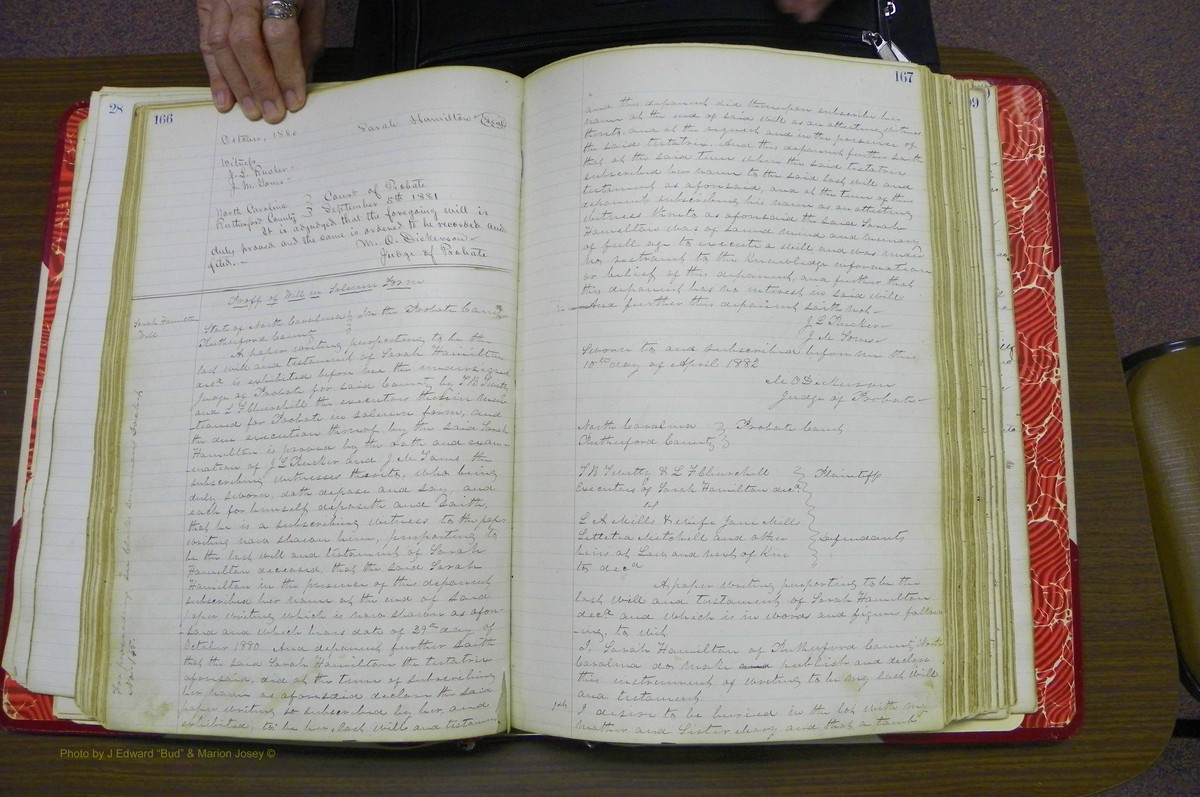 28
166
October, 1880 Sarah Hamilton (Seal)
Witness
J. L. Rucker
J. M. Toms
North Carolina } Court of Probate
Rutherford County } September 5th 1881
It is adjudged that the foregoing will is
duly proved and the same is ordered to be recorded and
filed.
M. O. Dickerson
Judge of Probate
Proff of Will in Solemn Form
Sarah Hamilton
Will
State of North Carolina } In the Probate Court
Rutherford County }
A paper writing purporting to be the
last will and testament of Sarah Hamilton
decd is exhibited before me the undersigned
Judge of Probate for said County by T. B. Twitty
and L F Churchill the executors therein men-
tioned for Probate in solemn form, and
the due execution thereof by the said Sarah
Hamilton is proved by the oath and exam-
ination of J L Rucker and J M Toms the
subscribing witnesses thereto, who being
duly sworn, doth depose and say, and
each for himself deposeth and saith,
that he is a subscribing witness to the paper
writing now shown him, purporting to
be the last will and testament of Sarah
Hamilton deceased, that the said Sarah
Hamilton in the presence of this deponent
subscribed her name at the end of said
paper writing which is now shown as afore-
said and which bears date of 29th day of
October 1880 And deponent further saith
that the said Sarah Hamilton the testatrix
aforesaid, did at the time of subscribing
her name as aforesaid declare the said
paper writing so subscribed by her, and
exhibited, to be her last will and testament
For proceedings see
167
and this deponent did thereupon subscribe his
name at the end of said will as an attesting witness
thereto, and at the request and in the presence of
the said testatrix. And this deponent further saith
that at the said time when the said testatrix
subscribed her name to the said last will and
testament as aforesaid, and at the time of this
deponent subscribing his name as an attesting
witness thereto as aforesaid the said Sarah
Hamilton was of sound mind and memory
of full age to execute a will and was under
no restraint to the knowledge information
or belief of this deponent, and further that
this deponent has no interest in said will
And further this deponent saith not
J L Rucker
J M Toms
Sworn to and subscribed before me this
10th day of April 1882
M O Dickerson
Judge of Probate
North Carolina } Probate Court
Rutherford County }
T B Twitty & L F Churchill } Plaintiff
Executors of Sarah Hamilton decd
vs
L A Mills & wife Jane Mills
Lettitia Mitchell and other } Defendants
heirs at Law and next of Kin
to decd
A paper writing purporting to be the
last will and testament of Sarah Hamilton
decd and which is in words and figures follow-
ing, to wit
I, Sarah Hamilton of Rutherford County North
Carolina do make and publish and declare
this instrument of writing to be my last will
and testament.
I desire to be buried in the lot with my
mother and Sister Mary and that a tomb
Photo by J Edward "Bud" & Marion Josey ©